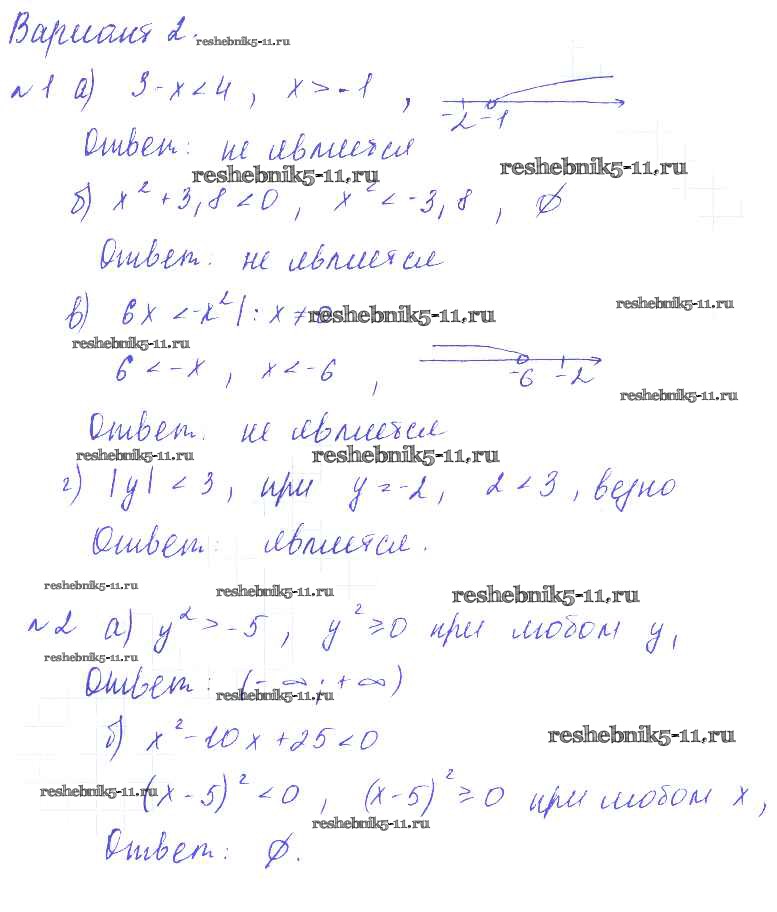 Вариант 2. reshebnik5-11.ru
№1 а) 3-x<4, x>-1, -2 -1
Ответ: не является
reshebnik5-11.ru reshebnik5-11.ru
б) x²+3,8<0, x²<-3,8, ∅
Ответ: не является
в) 6x<-x² |: x≠0 reshebnik5-11.ru reshebnik5-11.ru
reshebnik5-11.ru
6<-x, x<-6, -6 -2
reshebnik5-11.ru
Ответ: не является
reshebnik5-11.ru reshebnik5-11.ru
г) |y|<3, при y=-2, 2<3, верно
Ответ: является.
reshebnik5-11.ru reshebnik5-11.ru reshebnik5-11.ru
№2 а) y²>-5, y²≥0 при любом y,
reshebnik5-11.ru
Ответ: (-∞;+∞)
reshebnik5-11.ru
б) x²-10x+25<0
reshebnik5-11.ru
reshebnik5-11.ru (x-5)²<0, (x-5)²≥0 при любом x,
reshebnik5-11.ru
Ответ: ∅.